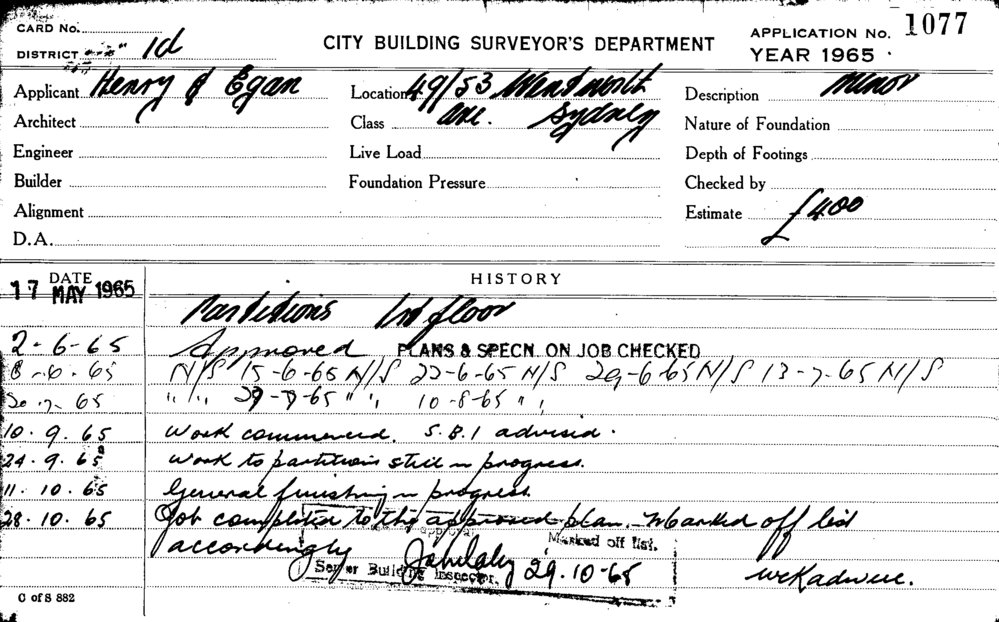 CARD No.
DISTRICT 1d
CITY BUILDING SURVEYOR'S DEPARTMENT
APPLICATION No. 1077
YEAR 1965
Applicant Henry & Egan
Location 49/53 Wentworth
Description Minor
Architect
Class Ave. Sydney
Nature of Foundation
Engineer
Live Load
Depth of Footings
Builder
Foundation Pressure
Checked by
Alignment
Estimate £400
D.A.
DATE
HISTORY
17 MAY 1965
Partitions floor
2-6-65 Approved PLANS & SPECN. ON JOB CHECKED
8-6-65 N/S 15-6-65 N/S 22-6-65 N/S 29-6-65 N/S 13-7-65 N/S
20-7-65 " " 29-7-65 " " 10-8-65 " "
10.9.65 Work commenced. S.B.I advised.
24.9.65 Work to partitions still in progress.
11.10.65 General finishing in progress.
28.10.65 Job completed to the approved plan. Marked off list
accordingly
Marked off list.
Senior Building Inspector. 29.10-65
C of S 882